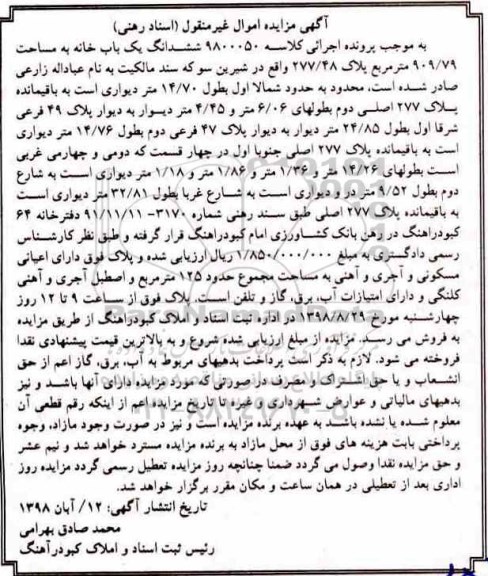 آگهی مزایده اموال غیرمنقول (اسناد رهنی)
به موجب پرونده اجرائی کلاسه ۹۸۰۰۰۵۰ ششدانگ یک باب خانه به مساحت
۹۰۹/۷۹ مترمربع پلاک ۲۷۷/۴۸ واقع در شیرین سو که سند مالکیت به نام عبداله زارعی
صادر شده است، محدود به حدود شمالا اول بطول ۱۴/۷۰ متر دیواری است به باقیمانده
پلاک ۲۷۷ اصلی دوم بطولهای ۶/۰۶ متر و ۴/۴۵ متر دیوار به دیوار پلاک ۴۹ فرعی
شرقا اول بطول ۲۴/۸۵ متر دیوار به دیوار پلاک ۴۷ فرعی دوم بطول ۱۴/۷۶ متر دیواری
است به باقیمانده پلاک ۲۷۷ اصلی جنوبا اول در چهار قسمت که دومی و چهارمی غربی
است بطولهای ۱۴/۲۶ متر و ۱/۳۶ متر و ۱/۸۶ متر و ۱/۱۸ متر دیواری است به شارع
دوم بطول ۹/۵۲ متر در و دیواری است به شارع غربا بطول ۳۲/۸۱ متر دیواری است
به باقیمانده پلاک ۲۷۷ اصلی طبق سند رهنی شماره ۳۱۷۰- ۹۱/۱۱/۱۱ دفترخانه ۶۴
کبودراهنگ در رهن بانک کشاورزی امام کبودراهنگ قرار گرفته و طبق نظر کارشناس
رسمی دادگستری به مبلغ ۱/۸۵۰/۰۰۰/۰۰۰ ریال ارزیابی شده و پلاک فوق دارای اعیانی
مسکونی و آجری و آهنی به مساحت مجموع حدود ۱۲۵ مترمربع و اصطبل آجری و آهنی
کلنگی و دارای امتیازات آب، برق، گاز و تلفن است. پلاک فوق از ساعت ۹ تا ۱۲ روز
چهارشنبه مورخ ۱۳۹۸/۸/۲۹ در اداره ثبت اسناد و املاک کبودراهنگ از طریق مزایده
به فروش می رسد. مزایده از مبلغ ارزیابی شده شروع و به بالاترین قیمت پیشنهادی نقدا
فروخته می شود. لازم به ذکر است پرداخت بدهیهای مربوط به آب، برق، گاز اعم از حق
انشعاب و یا حق اشتراک و مصرف در صورتی که مورد مزایده دارای آنها باشد و نیز
بدهیهای مالیاتی و عوارض شهرداری و غیره تا تاریخ مزایده اعم از اینکه رقم قطعی آن
معلوم شده یا نشده باشد به عهده برنده مزایده است و نیز در صورت وجود مازاد، وجوه
پرداختی بابت هزینه های فوق از محل مازاد به برنده مزایده مسترد خواهد شد و نیم عشر
و حق مزایده نقدا وصول می گردد ضمنا چنانچه روز مزایده تعطیل رسمی گردد مزایده روز
اداری بعد از تعطیلی در همان ساعت و مکان مقرر برگزار خواهد شد.
تاریخ انتشار آگهی: ۱۲/ آبان ۱۳۹۸
محمد صادق بهرامی
رئیس ثبت اسناد و املاک کبودرآهنگ